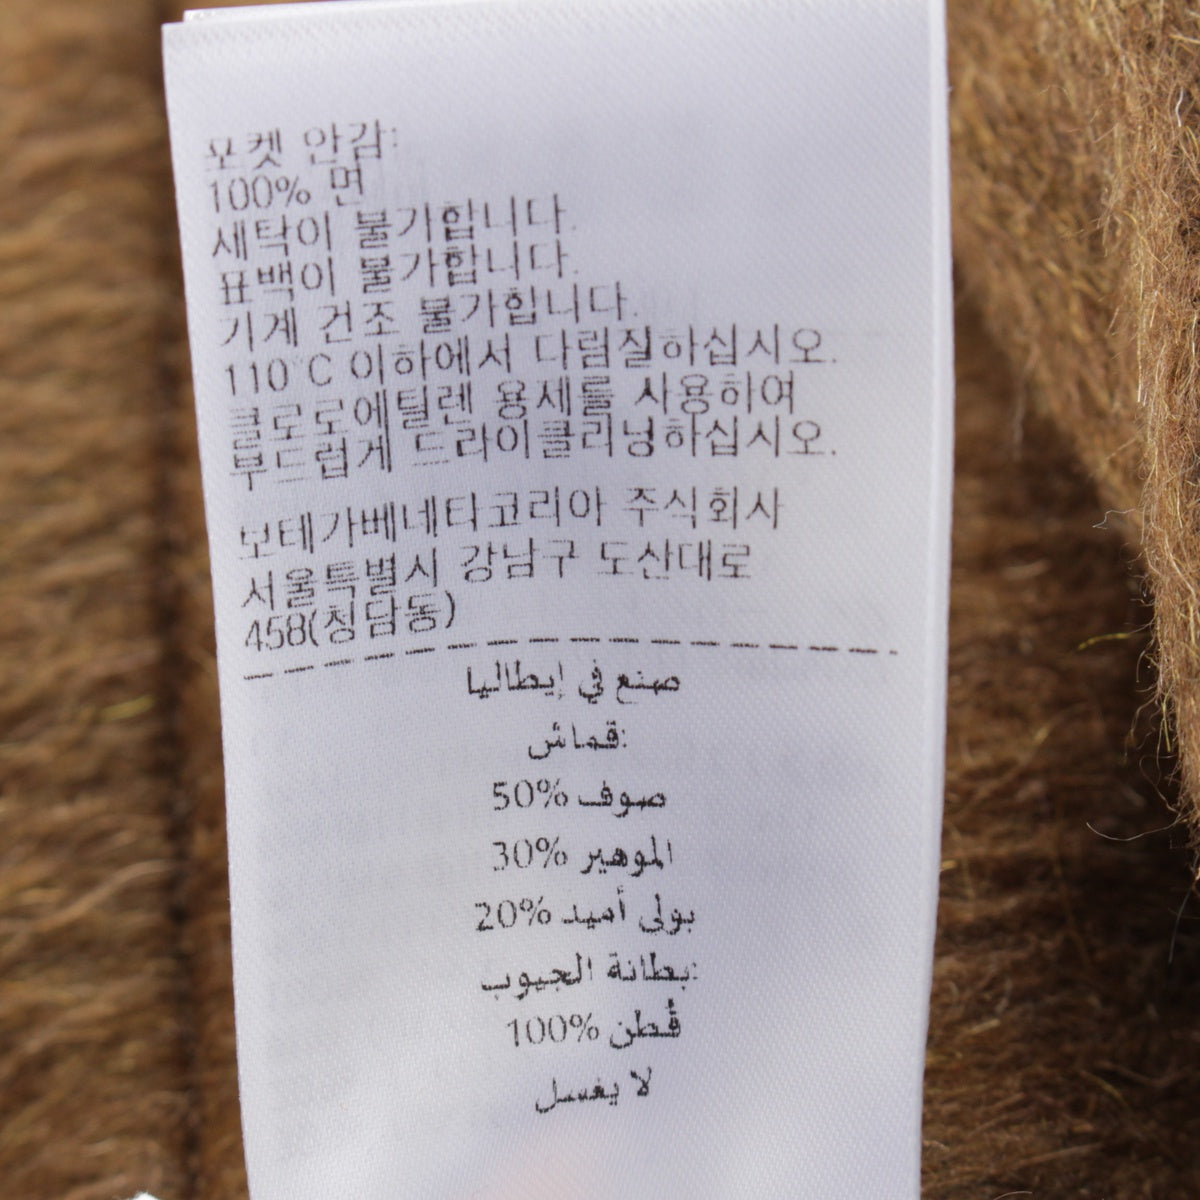 포켓 안감:
100% 면
세탁이 불가합니다.
표백이 불가합니다.
기계 건조 불가힙니다.
110°C 이하에서 다림질하십시오.
클로로에틸렌 용제를 사용하여
부드럽게 드라이클리닝하십시오.
보테가베네타코리아 주식회사
서울특별시 강남구 도산대로
458(청담동)
صنع في إيطاليا
قماش:
صوف 50%
الموهير 30%
بولى أميد 20%
بطانة الجيوب:
قُطن 100%
لا يغسل